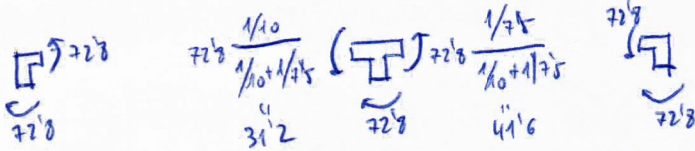 72'8
72'8
72'8 1/10 / (1/10+1/7'5)
31'2
72'8
72'8 1/7'5 / (1/10+1/7'5)
41'6
72'8
72'8